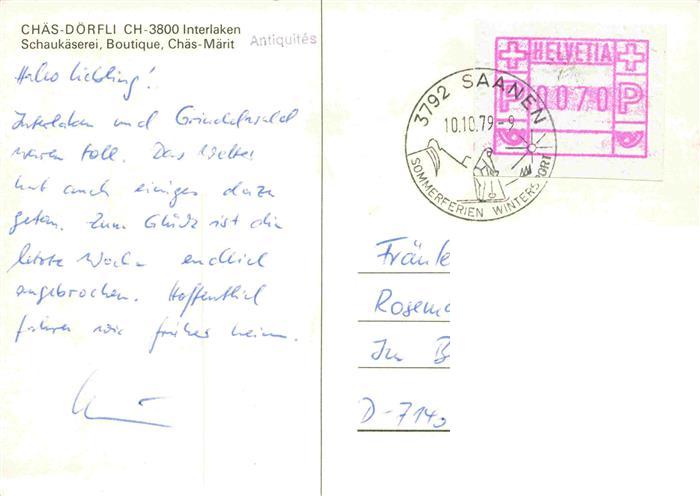 CHÄS-DÖRFLI CH-3800 Interlaken
Schaukäserei, Boutique, Chäs-Märit
Antiquités
Hallo Liebling!
Interlaken und Grindelwald
waren toll. Das Wetter
hat auch einiges dazu
getan. Zum Glück ist die
letzte Woche endlich
angebrochen. Hoffentlich
fahren wir früher heim.
HELVETIA
P 0070 P
3792 SAANEN
10.10.79-9
SOMMERFERIEN WINTERSPORT
Fräule
Rosema
Im B
D-7140